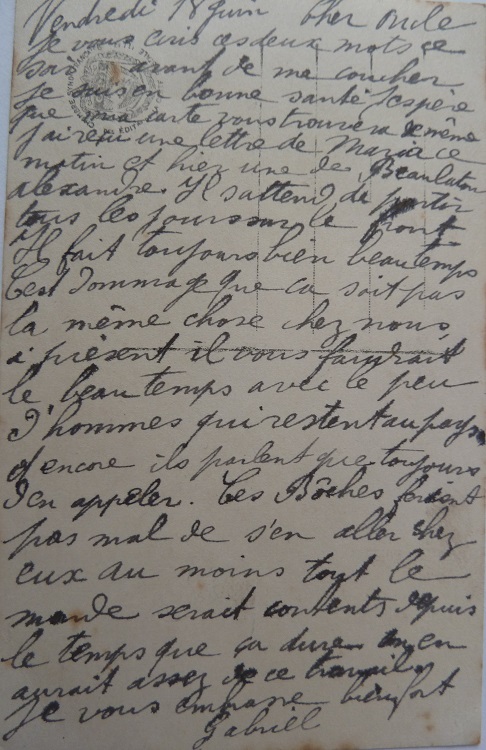 Vendredi 18 juin Cher Oncle
Je vous ecris ces deux mots ce
soir avant de ma coucher
Je suis en bonne santé Jespère
que ma carte vous trouvera de même
Jai reçu une lettre de Maria ce
matin et hier une de Beaulaton
alexandre. Il sattend de partir
tous les jours sur le front
Il fait toujours bien beau temps
Cest dommage que ca soit pas
la même chose chez nous
à présent il vous faudrait
le beau temps avec le peu
d'hommes qui restent au pays
et encore ils parlent que toujours
d'en appeler. Ces Bôches feraient
pas mal de s'en aller chez
eux au moins tout le
monde serait contents depuis
le temps que ça dure on en
aurait assez de ce travail
Je vous embrasse bien fort
Gabriel